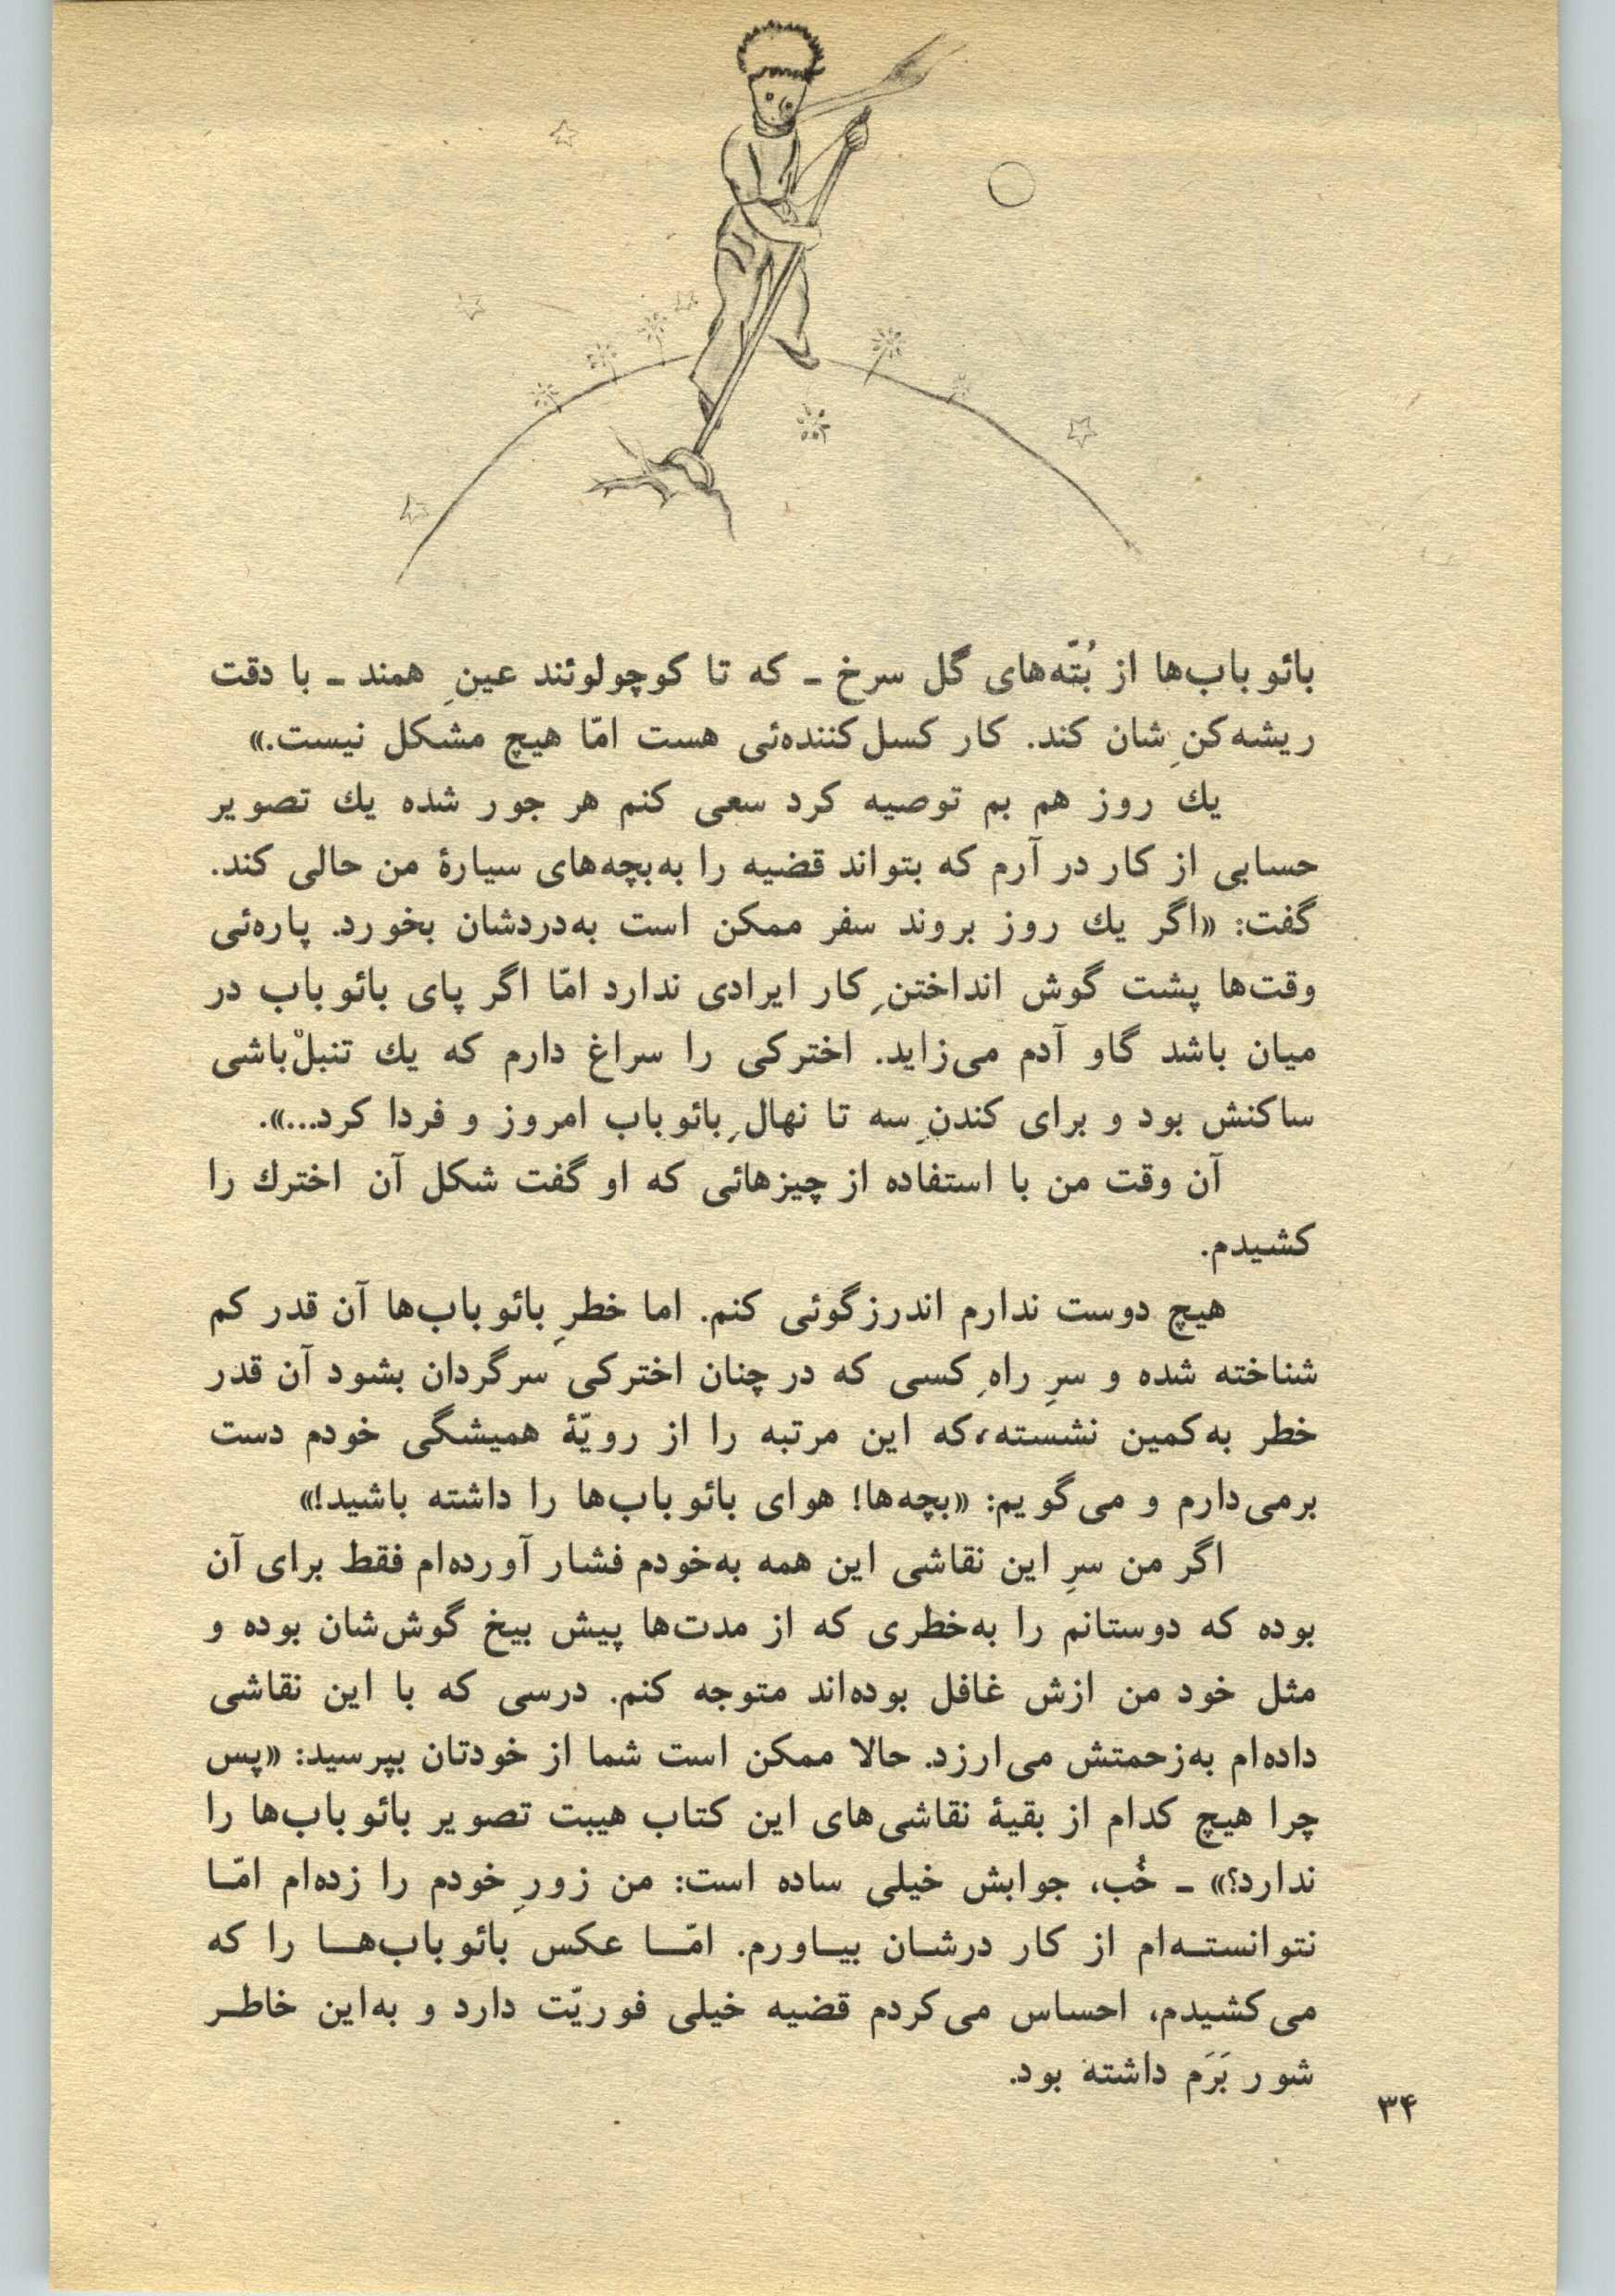 بائوباب‌ها از بُتّه‌های گل سرخ ـ که تا کوچولوئند عینِ همند ـ با دقت
ریشه‌کنِ‌شان کند. کار کسل‌کننده‌ئی هست امّا هیچ مشکل نیست.»
یك روز هم بم توصیه کرد سعی کنم هر جور شده یك تصویر
حسابی از کار در آرم که بتواند قضیه را به‌بچه‌های سیارهٔ من حالی کند.
گفت: «اگر یك روز بروند سفر ممکن است به‌دردشان بخورد. پاره‌ئی
وقت‌ها پشت گوش انداختنِ کار ایرادی ندارد امّا اگر پای بائوباب در
میان باشد گاو آدم می‌زاید. اخترکی را سراغ دارم که یك تنبلْ‌باشی
ساکنش بود و برای کندنِ سه تا نهالِ بائوباب امروز و فردا کرد...».
آن وقت من با استفاده از چیزهائی که او گفت شکل آن اخترك را
کشیدم.
هیچ دوست ندارم اندرزگوئی کنم. اما خطرِ بائوباب‌ها آن قدر کم
شناخته شده و سرِ راهِ کسی که در چنان اخترکی سرگردان بشود آن قدر
خطر به‌کمین نشسته، که این مرتبه را از رویّهٔ همیشگی خودم دست
برمی‌دارم و می‌گویم: «بچه‌ها! هوای بائوباب‌ها را داشته باشید!»
اگر من سرِ این نقاشی این همه به‌خودم فشار آورده‌ام فقط برای آن
بوده که دوستانم را به‌خطری که از مدت‌ها پیش بیخ گوش‌شان بوده و
مثل خود من ازش غافل بوده‌اند متوجه کنم. درسی که با این نقاشی
داده‌ام به‌زحمتش می‌ارزد. حالا ممکن است شما از خودتان بپرسید: «پس
چرا هیچ کدام از بقیهٔ نقاشی‌های این کتاب هیبت تصویر بائوباب‌ها را
ندارد؟» ـ خُب، جوابش خیلی ساده است: من زورِ خودم را زده‌ام امّـا
نتوانستـه‌ام از کار درشـان بیـاورم. امّـا عکس بائوباب‌هـا را که
می‌کشیدم، احساس می‌کردم قضیه خیلی فوریّت دارد و به‌این خاطـر
شور بَرَم داشته بود.
۳۴